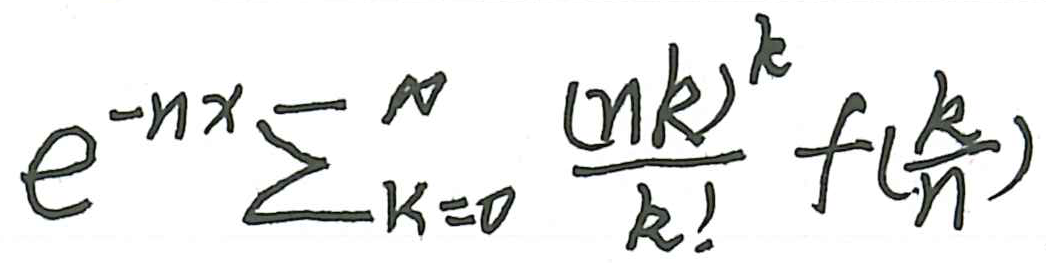 e^{-nx} \sum_{k=0}^{\infty} \frac{(nk)^k}{k!} f(\frac{k}{n})